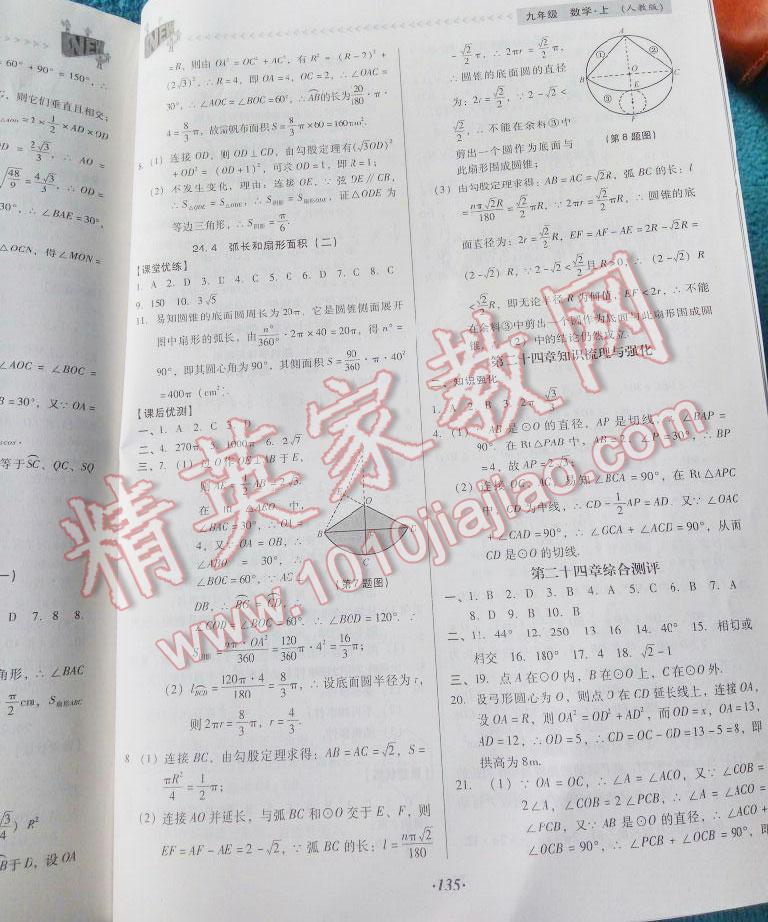 九年级 数学·上 (人教版)
60°+90°=150°,
, 则它们垂直且相交;
∴ ∠BAE=30°,
△OCN, 得∠MON=
∠AOC=∠BOC=
B=30°, 又∵OA=
等于SC、QC、SQ
D 7. 8 8.
角形, ∴∠BAC
于D, 设OA
=R, 则由OA²=OC²+AC², 有R²=(R-2)²+
(2√3)², ∴R=4, 即OA=4, OC=2, ∴∠OAC=
30°, ∴∠AOC=∠BOC=60°, ∴AB的长为20/180·π·
4=8/3π, 故需帆布面积S=8/3π×60=160πm².
8. (1) 连接OD, 则OD⊥CD, 由勾股定理有(√3OD)²
+OD²=(OD+1)², 可求OD=1, 即R=1;
(2) 不发生变化, 理由: 连接OE, ∵弦DE∥CB,
等边三角形, ∴S阴影=π/6.
24.4 弧长和扇形面积(二)
【课堂优练】
1. A 2. D 3. D 4. C 5. C 6. D 7. C 8. C
9. 150 10. 3√5
11. 易知圆锥的底面圆周长为20π, 它是圆锥侧面展开
图中扇形的弧长, 由n°/360°·2π×40=20π, 得n°=
90°, 即其圆心角为90°, 其侧面积S=90/360·π·40²
=400π(cm²).
【课后优测】
二、4. 270π 5. 1000π 6. 2√7
三、7. (1) 过O作OE⊥AB于E,
则AE=1/2AB=2√3.
在Rt△AEO中,
∠BAC=30°, ∴OA=
4, 又∵OA=OB, ∴
∠ABO=30°, ∴
∠BOC=60°, ∵AC⊥
DB, ∴BC=CD, ∴
∠COD=∠BOC=60°. ∴∠BOD=120°. ∵
S阴影=nπ·OA²/360=120/360π·4²=16/3π;
(第7题图)
(2) lBCD=120π·4/180=8/3π, ∴设底面圆半径为r,
则2πr=8/3π, r=4/3.
8 (1) 连接BC, 由勾股定理求得: AB=AC=√2, S=
πR²/4=1/2π;
(2) 连接AO并延长, 与弧BC和⊙O交于E、F, 则
EF=AF-AE=2-√2, ∵弧BC的长: l=nπ√2/180
=√2/2π, ∴2πr=√2/2π,
∴圆锥的底面圆的直径
为: 2r=√2/2, ∵2-√2<
√2/2, ∴不能在余料③中
剪出一个圆作为底面与
此扇形围成圆锥;
(第8题图)
(3) 由勾股定理求得: AB=AC=√2R, 弧BC的长: l
=nπ√2R/180=√2/2πR, ∵2πr=√2/2πR, ∴圆锥的底
面直径为: 2r=√2/2R, EF=AF-AE=2R-√2R=
(2-√2)R, ∵2-√2<√2/2且R>0, ∴(2-√2)R
<√2/2R, 即无论半径R为何值, EF<2r, ∴不能
在余料③中剪出一个圆作为底面与此扇形围成圆
锥, (2)中的结论仍然成立.
第二十四章知识流理与强化
、知识强化
1. A 2. B 3. 2π √3/3
4. (1) ∵AB是⊙O的直径, AP是切线, ∴∠BAP=
90°. 在Rt△PAB中, AB=2, ∠P=30°, ∴BP
=4, 故AP=2√3;
(2) 连接OC、AC, 易知∠BCA=90°, 在Rt△APC
中, CD为中线, ∴CD=1/2AP=AD. 又∠OAC
+∠CAD=90°, ∴∠OCA+∠ACD=90°, 从而
CD是⊙O的切线.
第二十四章综合测评
一、1. B 2. D 3. B 4. A 5. C 6. B 7. A
8. D 9. B 10. B
二、11. 44° 12. 250 13. 16 14. 40° 15. 相切或
相交 16. 180° 17. 4 18. √2-1
三、19. 点A在⊙O内, B在⊙O上, C在⊙O外.
20. 设弓形圆心为O, 则点O在CD延长线上, 连接OA,
设OA=R, 则OA²=OD²+AD², 而OD=x, OA=13,
AD=12, ∴OD=5, ∴CD=OC-OD=13-5=8, 即
拱高为8m.
21. (1) ∵OA=OC, ∴∠A=∠ACO, 又∵∠COB=
2∠A, ∠COB=2∠PCB, ∴∠A=∠ACO=
∠PCB, 又∵AB是⊙O的直径, ∴∠ACO+
∠OCB=90°, ∴∠PCB+∠OCB=90°, 即
·135·
精英家教网
www.1010jiajiao.com